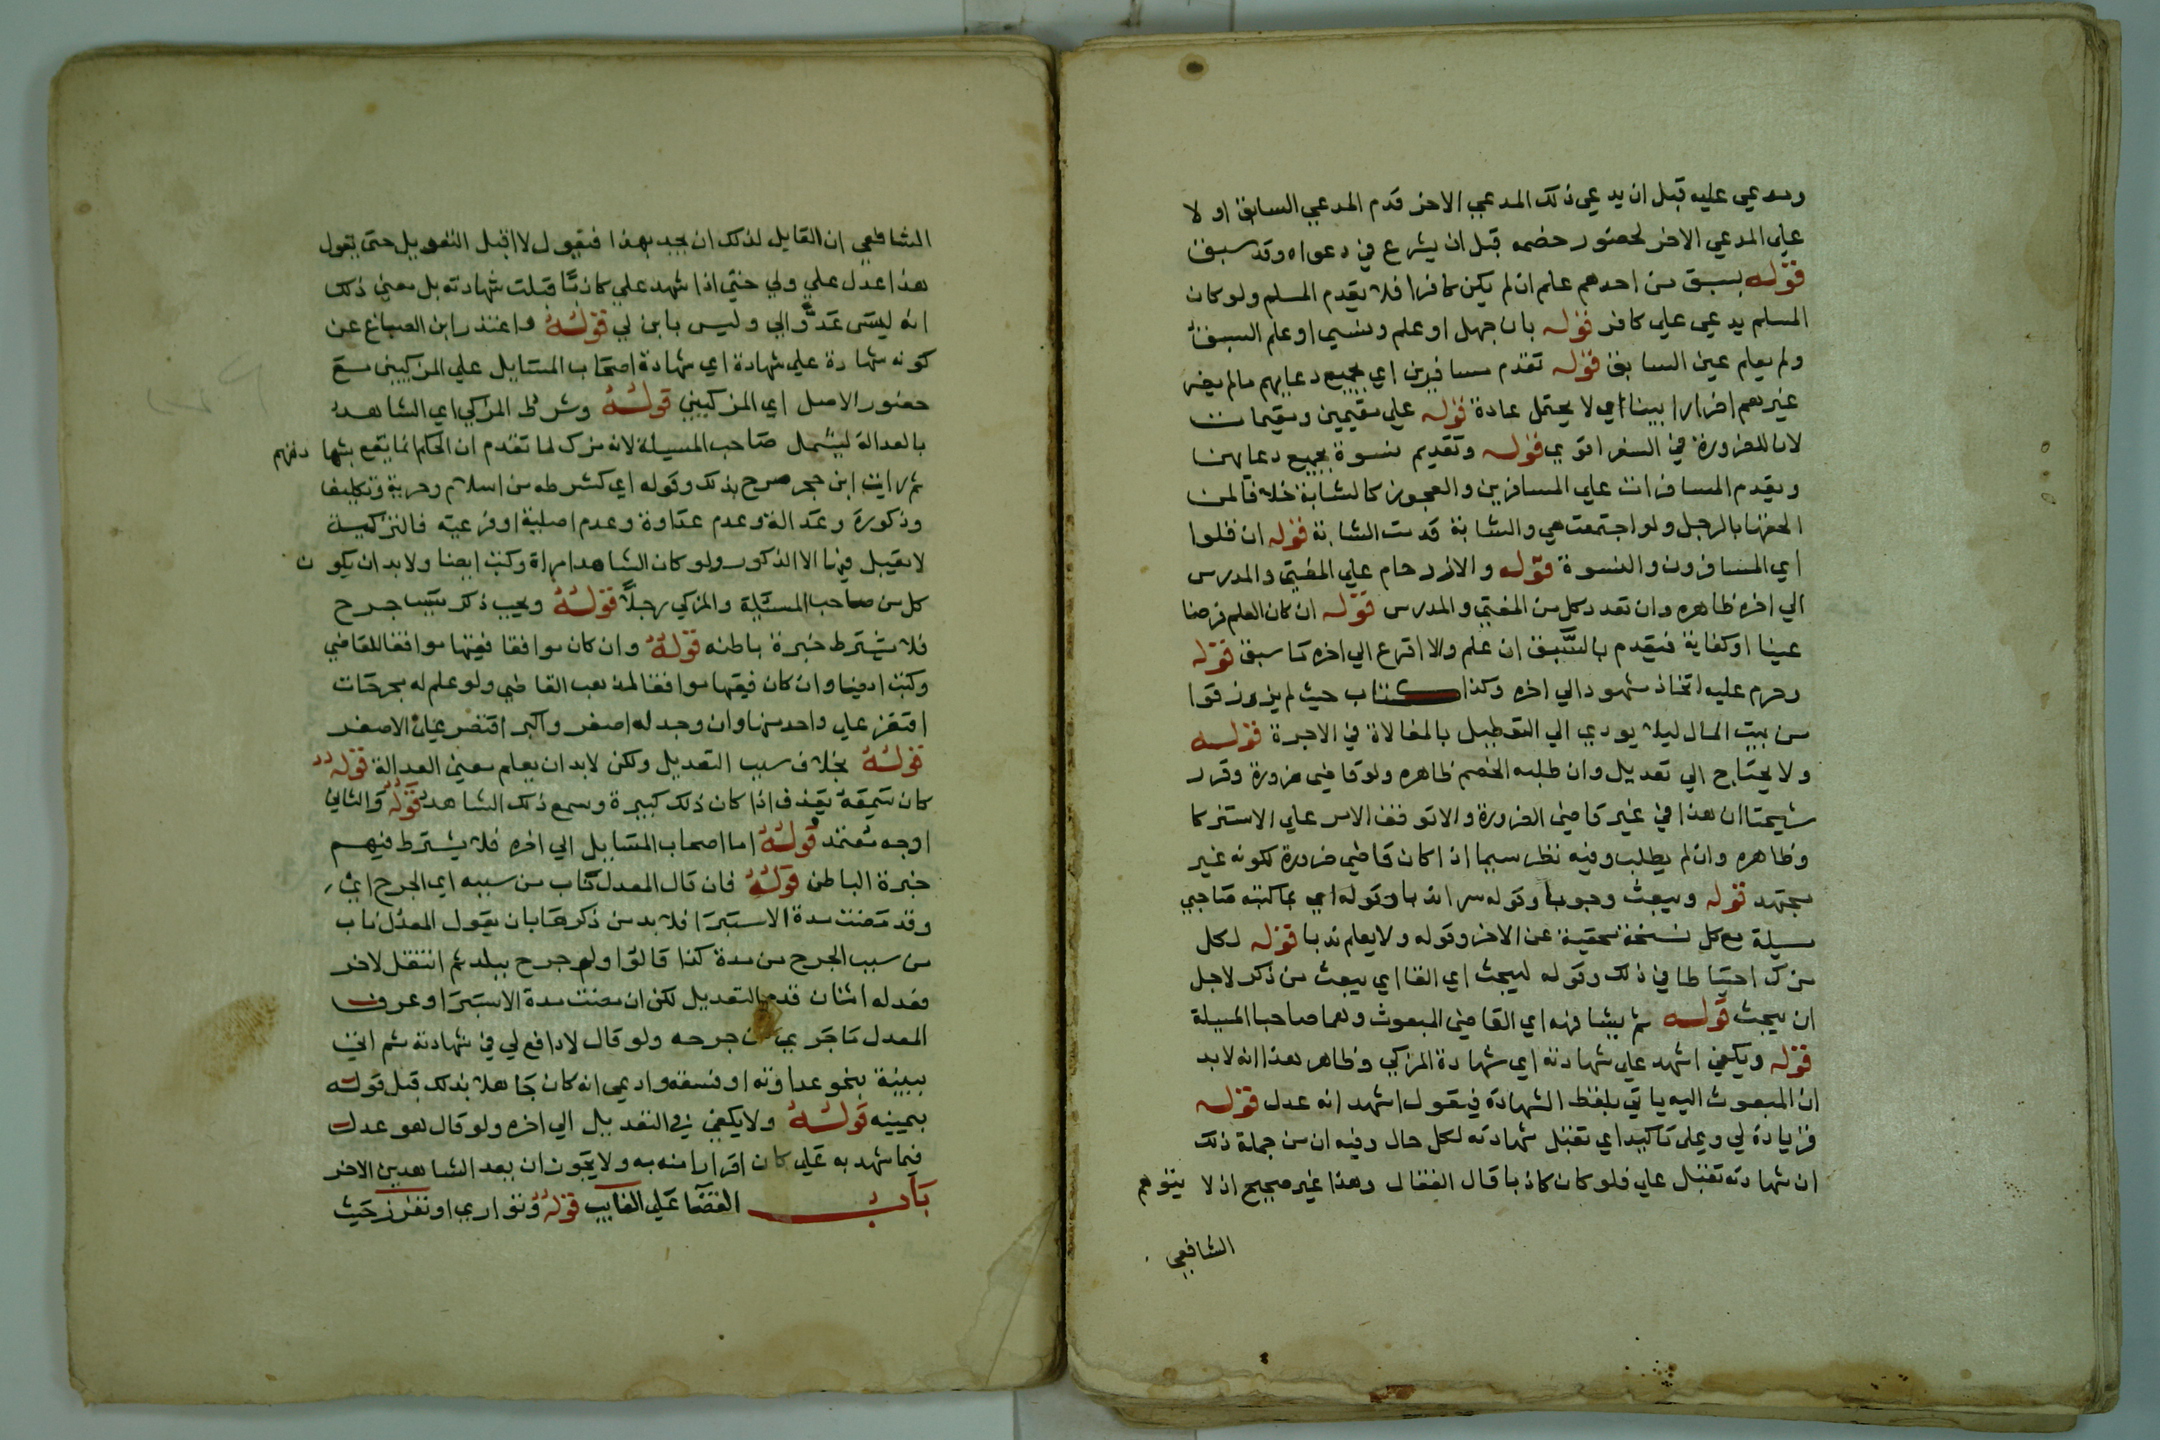 ومدعي عليه قبل ان يدعي ذلك المدعي الاخر قدم المدعي السابق او لا
علي المدعي الاخر لحضور خصمه قبل ان يشرع في دعواه وقد سبق
قوله بسبق من احدهم علم ان لم يكن كافرا فلا يقدم المسلم ولو كان
المسلم يدعي علي كافر قوله بان جهل او علم ونسي او علم السبق
ولم يعلم عين السابق قوله تقدم مسافرين اي بجميع دعاويهم مالم يضر
غيرهم اضرارا بينا اي لا يحتمل عادة قوله علي مقيمين ومقيمات
لان الضرورة في السفر اقوي قوله وتقديم نسوة بجميع دعاويهن
ويقدم المسافرات علي المسافرين والعجوز كالشابة خلافا لمن
الحقها بالرجل ولو اجتمعت هي والشابة قدمت الشابة قوله ان قلوا
اي المسافرون والنسوة قوله والازدحام علي المفتي والمدرس
الي اخره ظاهره وان تعدد كل من المفتي والمدرس قوله ان كان العلم فرضا
عينا او كفاية فيقدم بالسبق ان علم والا اقرع الي اخره كما سبق قوله
وحرم عليه اتخاذ شهود الي اخره وكذا كتاب حيث لم يرزقوا
من بيت المال ليلا يودي الي التعطيل بالمغالاة في الاجرة قوله
ولا يحتاج الي تعديل وان طلبه الخصم ظاهره ولو قاضي ضرورة وقرر
شيخنا ان هذا في غير قاضي الضرورة والا توقف الامر علي الاستزكا
وظاهره وان لم يطلب وفيه نظر سيما اذا كان قاضي ضرورة لكونه غير
مجتهد قوله ويبعث وجوبا وقوله سرا ندبا وقوله اي بما كتبه صاحبي
مسيلة مع كل نسخة مخفية عن الاخر وقوله ولا يعلم ندبا قوله لكل
مزك احتياطا في ذلك وقوله ليبحث اي القا اي يبعث من ذكر لاجل
ان يبحث قوله ثم يشافهه اي القاضي المبعوث وهما صاحبا المسيلة
قوله ويكفي اشهد علي شهادته اي شهادة المزكي وظاهر هذا انه لابد
ان المبعوث اليه ياتي بلفظ الشهادة فيقول اشهد انه عدل قوله
فزيادة لي وعلي تاكيد اي تقبل شهادته لكل حال وفيه ان من جملة ذلك
ان شهادته تقبل علي فلو كان كاذبا قال القفال وهذا غير صحيح اذ لا يتوهم
الشافعي
الشافعي ان القايل لذلك ان يجيد بهذا فيقول لا اقبل التعديل حتي يقول
هذا عدل علي ولي حتي اذا شهد علي كاذبا قبلت شهادته بل معني ذلك
انه ليس عدوا لي وليس بابن لي قوله واعتذر ابن الصباغ عن
كونه شهادة علي شهادة اي شهادة اصحاب المسايل علي المزكيين مع
حضور الاصل اي المزكيين قوله وشرط المزكي اي الشاهد
بالعدالة ليشمل صاحب المسيلة لانه مزك لما تقدم ان الحكم انما يقع بشهادتهم
ثم رايت ابن حجر صرح بذلك وقوله اي كشرطه من اسلام وحرية وتكليف
وذكورة وعدالة وعدم عداوة وعدم اصلية او فرعية فالتزكية
لا يقبل فيها الا الذكور ولو كان الشاهد امراة وكتب ايضا ولابد ان يكون
كل من صاحب المسئلة والمزكي رجلا قوله ويجب ذكر سبب جرح
فلا يشترط خبرة باطنه قوله وان كان موافقا فقيها موافقا للقاضي
وكتب ايضا وان كان فقيها موافقا لمذهب القاضي ولو علم له مجرحات
اقتصر علي واحد منها وان وجد له اصغر واكبر اقتصر علي الاصغر
قوله بخلاف سبب التعديل ولكن لابد ان يعلم معني العدالة قوله
كان سمعه يقذف اذا كان ذلك كبيرة وسمع ذلك الشاهد قوله والثاني
اوجه معتمد قوله اما اصحاب المسايل الي اخره فلا يشترط فيهم
خبرة الباطن قوله فان قال المعدل تاب من سببه اي الجرح اي
وقد مضت مدة الاستبرا فلابد من ذكرها بان يقول المعدل تاب
من سبب الجرح من مدة كذا قالوا ولو جرح ببلد ثم انتقل لاخر
فعدله اثنان قدم التعديل لكن ان مضت مدة الاستبرا وعرف
المعدل ما جري من جرحه ولو قال لا دافع لي في شهادته ثم اتي
ببينة بنحو عداوته او فسقه وادعي انه كان جاهلا بذلك قبل قوله
بيمينه قوله ولا يكفي في التعديل الي اخره ولو قال هو عدل
فيما شهد به علي كان اقرارا منه به ولا يجوز ان بعد الشاهدين الاخر
باب القضا علي الغايب قوله وتواري او تعزز حيث